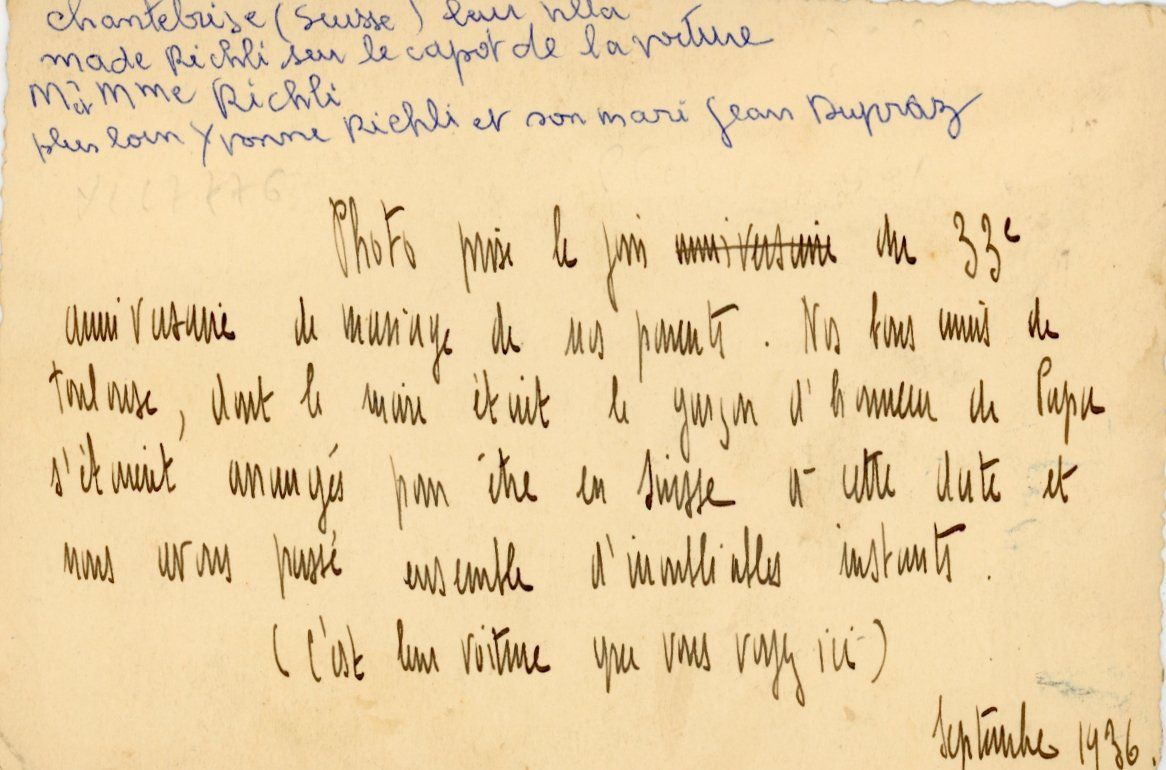 chantebrise (Suisse) leur villa
made Richli sur le capot de la voiture
Mr et Mme Richli
plus loin Yvonne Richli et son mari Jean Dupraz
Photo prise le jour anniversaire du 33e
anniversaire de mariage de nos parents. Nos bons amis de
Toulouse, dont le mari était le garçon d'honneur de Papa
s'étaient arrangés pour être en Suisse à cette date et
nous avons passé ensemble d'inoubliables instants.
(C'est leur voiture que vous voyez ici)
Septembre 1936.